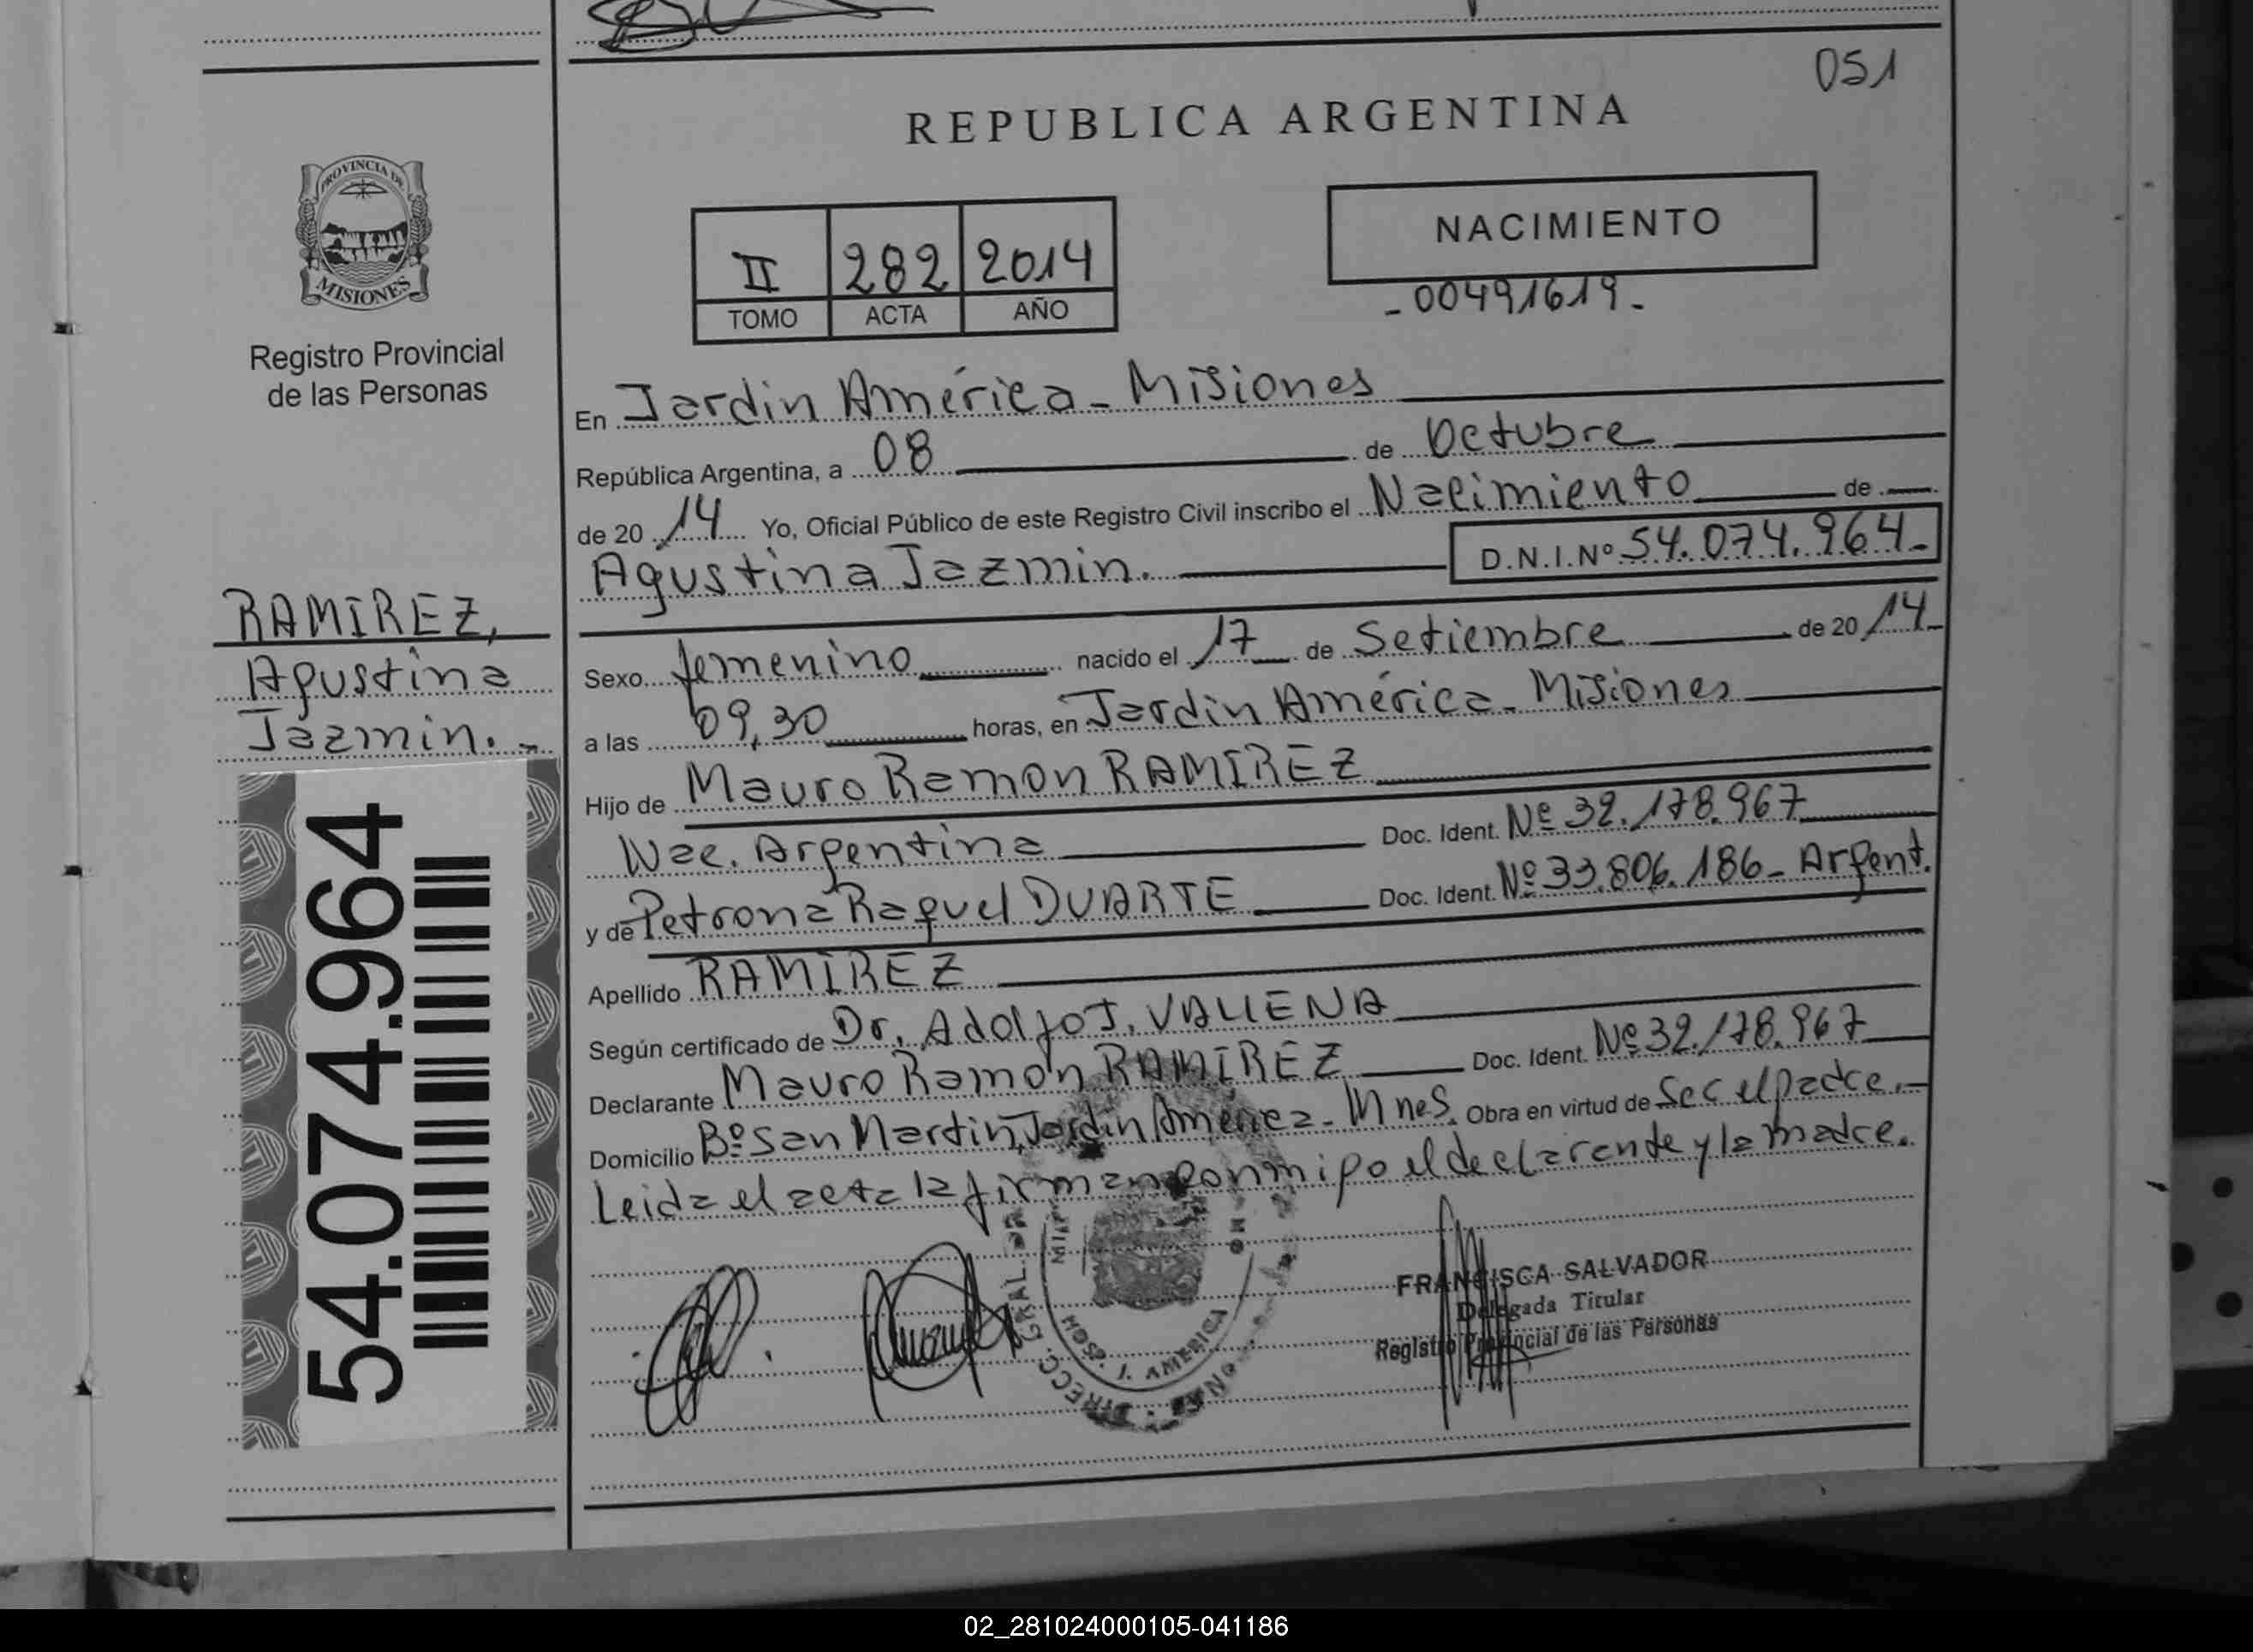 051
REPUBLICA ARGENTINA
PROVINCIA DE
MISIONES
Registro Provincial
de las Personas
II 282 2014
TOMO ACTA AÑO
NACIMIENTO
- 00491619 -
En Jardin América - Misiones
República Argentina, a 08 de Octubre
de 20 14 Yo, Oficial Público de este Registro Civil inscribo el Nacimiento de
Agustina Jazmin. D.N.I.Nº 54.074.964-
RAMIREZ,
Agustina
Jazmin. -
54.074.964
Sexo femenino nacido el 17 de Setiembre de 20 14-
a las 09,30 horas, en Jardin América - Misiones
Hijo de Mauro Ramon RAMIREZ
Nac. Argentina Doc. Ident. Nº 32.178.967
y de Petrona Raquel DUARTE Doc. Ident. Nº 33.806.186 - Argent.
Apellido RAMIREZ
Según certificado de Dr. Adolfo J. VALLENA
Declarante Mauro Ramón RAMIREZ Doc. Ident. Nº 32.178.967
Domicilio Bº San Martin, Jardin América - Mnes. Obra en virtud de Sec el padre.-
Leida el acta la firman conmigo el declarante y la madre.
DIRECC. GRAL. DE
HOSP. J. AMERICA
FRANCISCA SALVADOR
Delegada Titular
Registro Provincial de las Personas
02_281024000105-041186